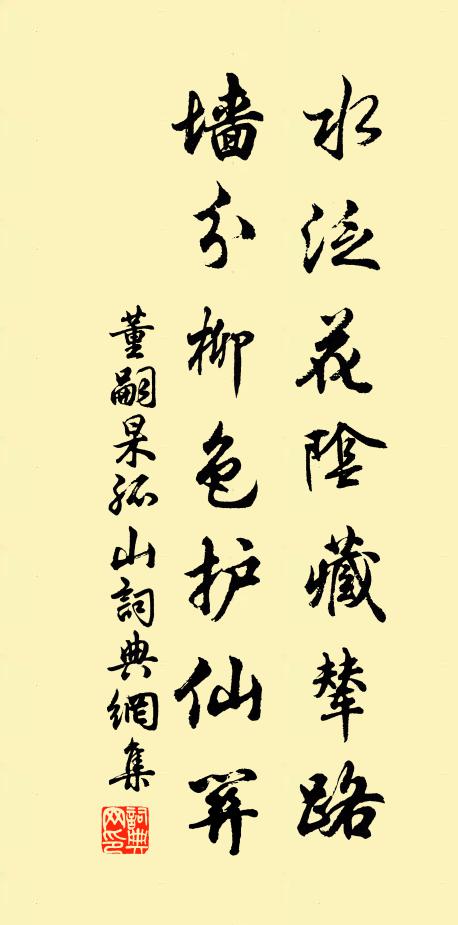 水泛花陰藏輦路
墙分柳色护仙
董嗣杲孤山詞典網集
詞典网印